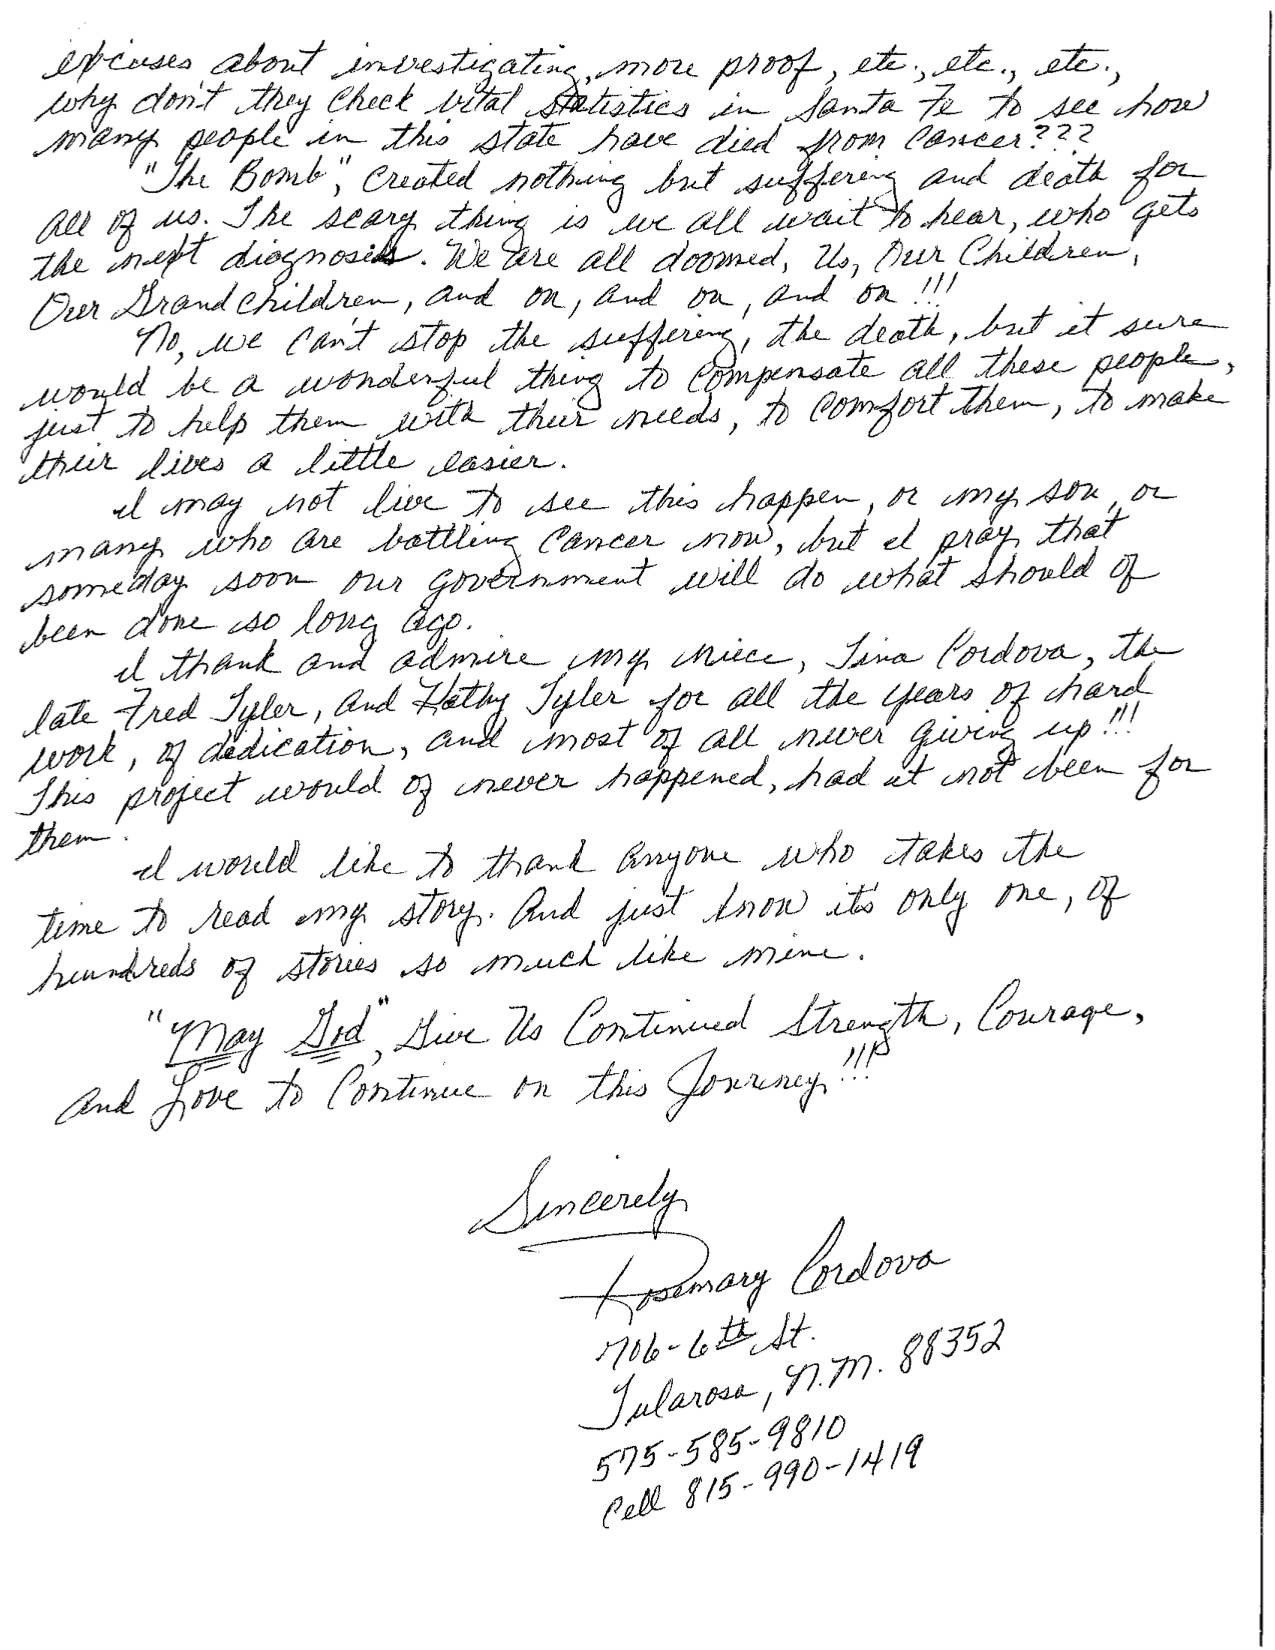 excuses about investigating, more proof, etc., etc., etc.,
why don't they check vital statistics in Santa Fe to see how
many people in this state have died from Cancer???
"The Bomb", created nothing but suffering and death for
all of us. The scary thing is we all wait to hear, who gets
the next diagnosis. We are all doomed, Us, Our Children,
Our Grandchildren, and on, and on, and on!!!
No, we can't stop the suffering, the death, but it sure
would be a wonderful thing to compensate all these people,
just to help them with their needs, to comfort them, to make
their lives a little easier.
I may not live to see this happen, or my son, or
many who are battling Cancer now, but I pray that
someday soon our government will do what should of
been done so long ago.
I thank and admire my niece, Tina Cordova, the
late Fred Tyler, and Kathy Tyler for all the years of hard
work, of dedication, and most of all never giving up!!!
This project would of never happened, had it not been for
them.
I would like to thank anyone who takes the
time to read my story. And just know it's only one, of
hundreds of stories so much like mine.
"May God", Give Us Continued Strength, Courage,
and Love to Continue on this Journey!!!
Sincerely
Rosemary Cordova
706-6th St.
Tularosa, N.M. 88352
575-585-9810
Cell 815-990-1419